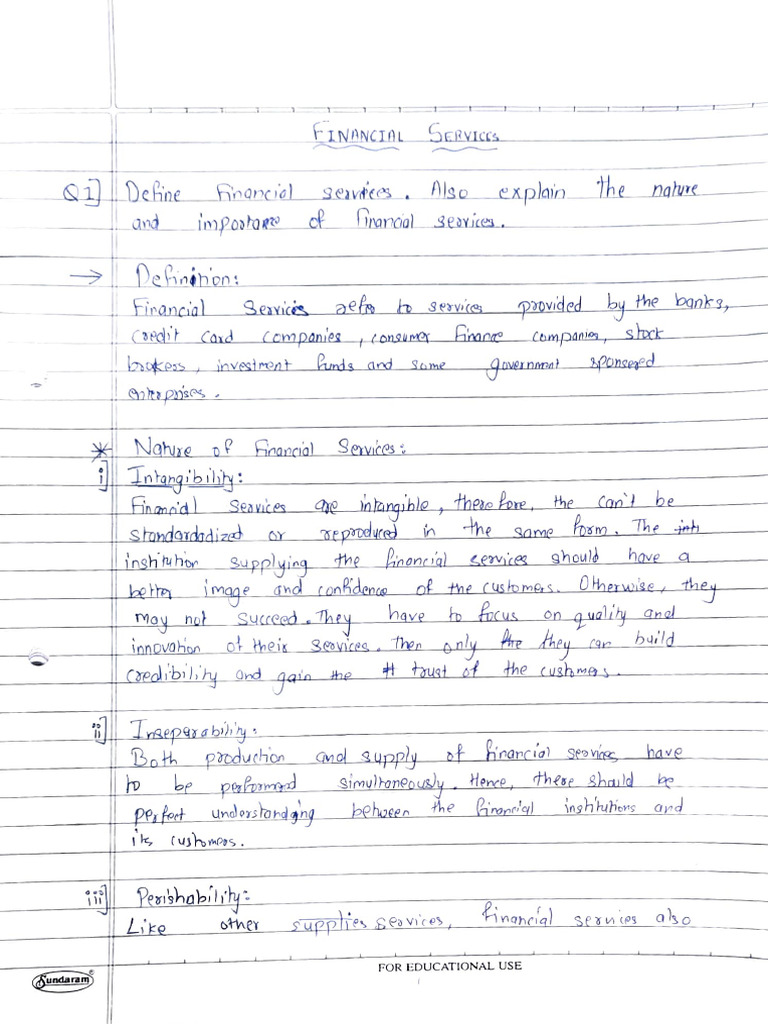 FINANCIAL SERVICES
Q1] Define financial services. Also explain the nature
and importance of financial services.
→ Definition:
Financial Services refer to services provided by the banks,
credit card companies, consumer finance companies, stock
brokers, investment funds and some government sponsered
enterprises.
* Nature of Financial Services:
i] Intangibility:
Financial services are intangible, therefore, the can't be
standardadized or reproduced in the same form. The inti
institution supplying the financial services should have a
better image and confidence of the customers. Otherwise, they
may not succeed. They have to focus on quality and
innovation of their services. Then only the they can build
credibility and gain the tt trust of the customers.
ii] Inseparability:
Both production and supply of financial services have
to be performed simultaneously. Hence, there should be
perfect understanding between the financial institutions and
its customers.
iii] Perishability:
Like other supplies services, financial services also
Sundaram®
FOR EDUCATIONAL USE